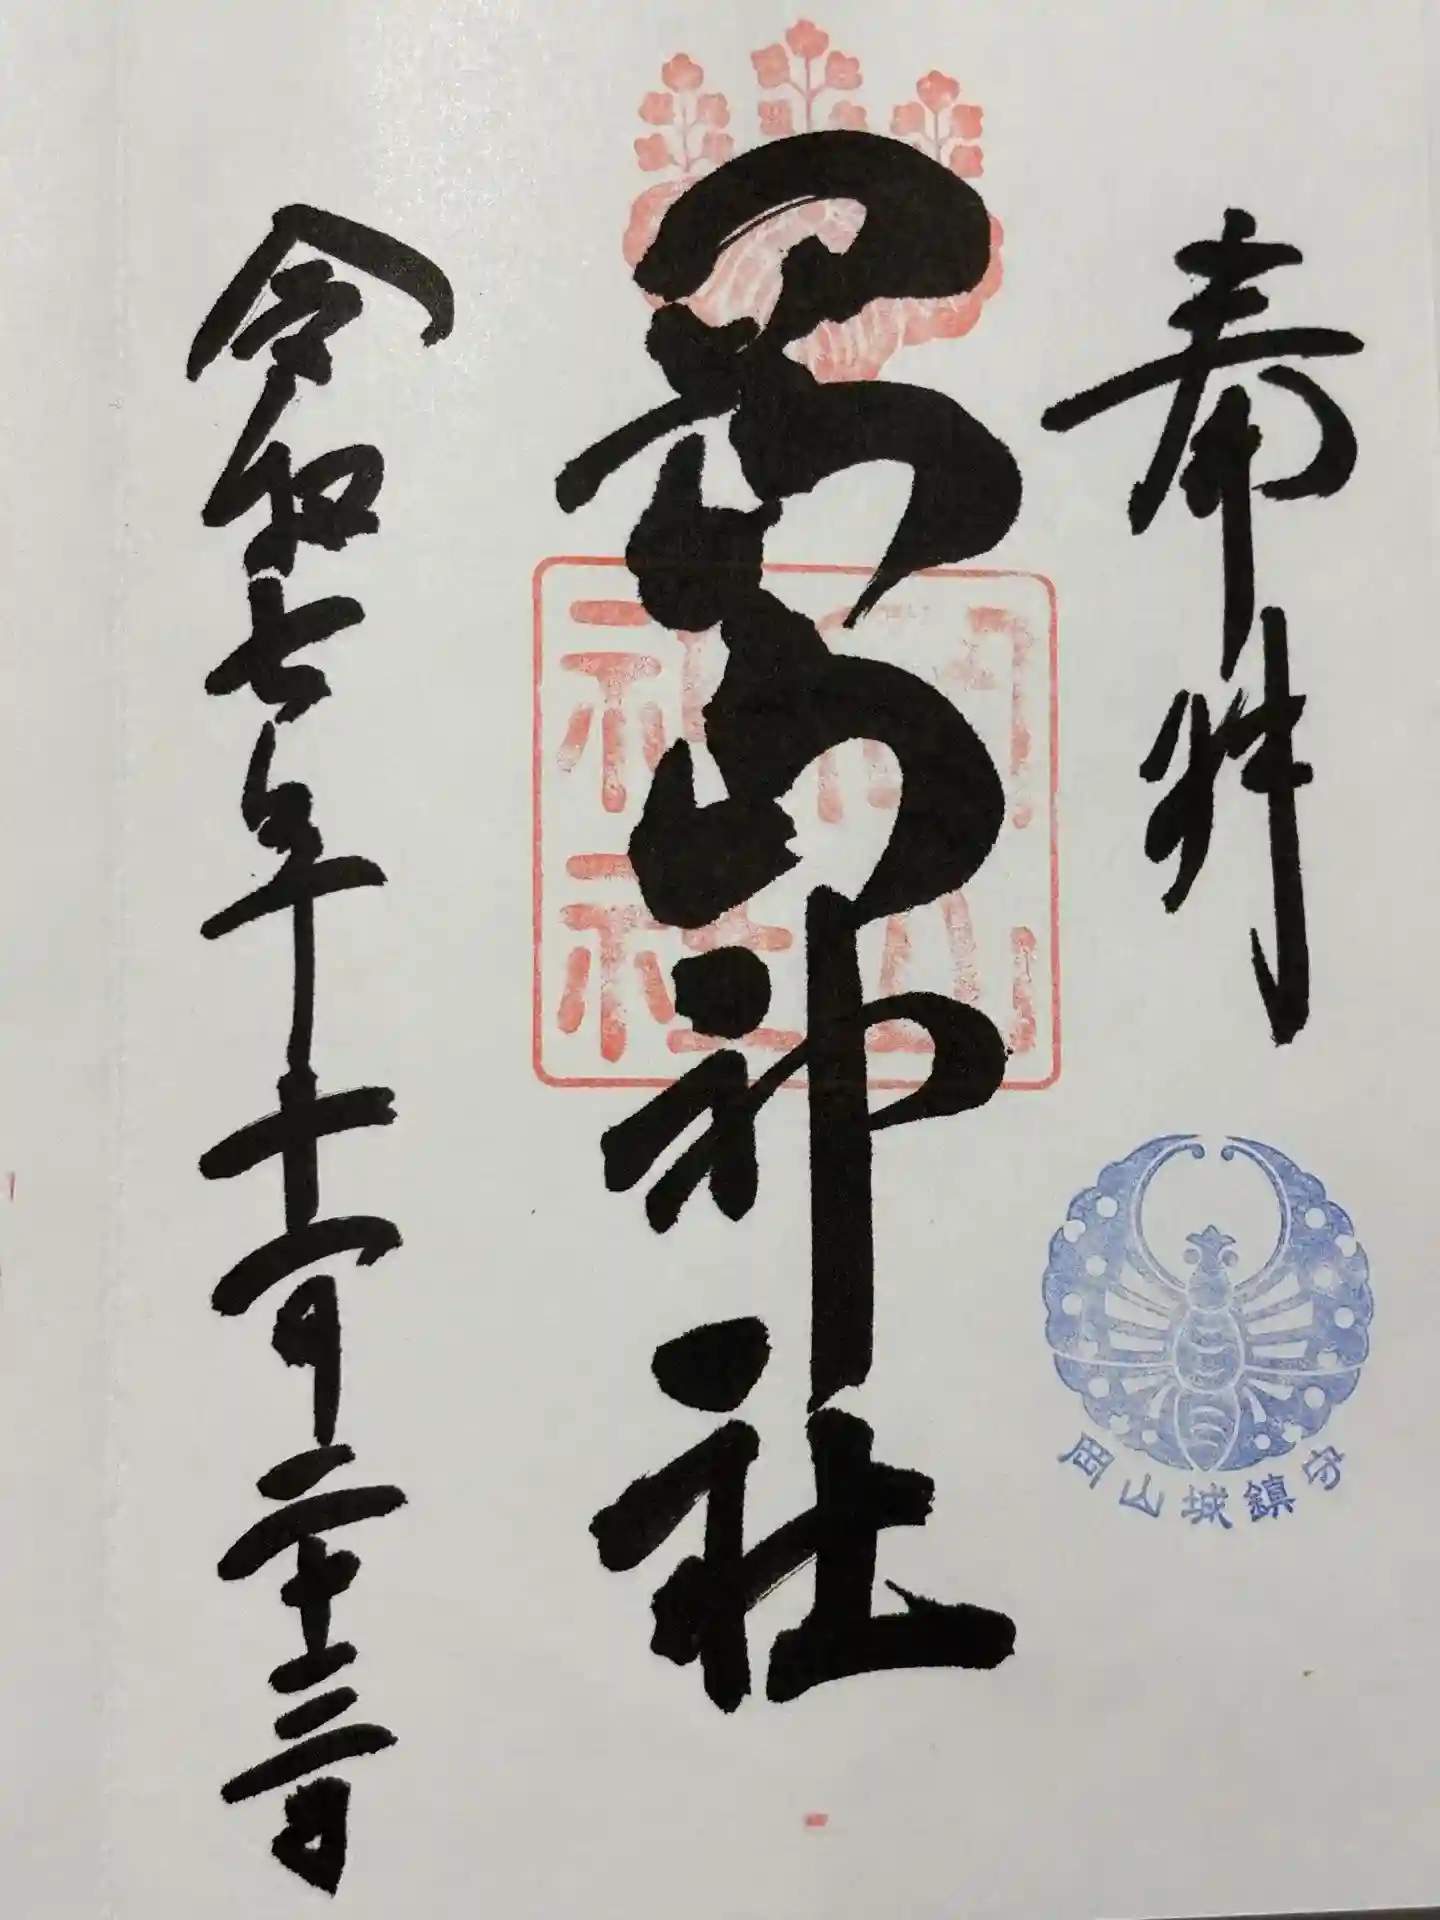 奉拝
岡山神社
岡山
神社
岡山城鎮守
令和七年十一月二十三日